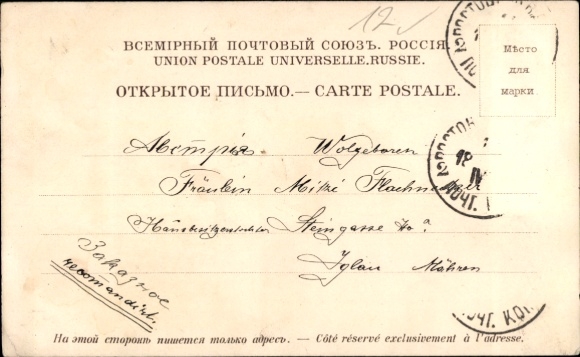 12
ВСЕМІРНЫЙ ПОЧТОВЫЙ СОЮЗЪ. РОССІЯ
UNION POSTALE UNIVERSELLE. RUSSIE.
ОТКРЫТОЕ ПИСЬМО.— CARTE POSTALE.
Мѣсто
для
марки
Австрія Wolgeboren
Fräulein Mitzi
Steingasse
Iglau Mähren
Заказное
recomandirt.
РОСТОВ
18
IV
ПОЧТ.
ПОЧТ. КОН
На этой сторонѣ пишется только адресъ. — Côté réservé exclusivement à l'adresse.